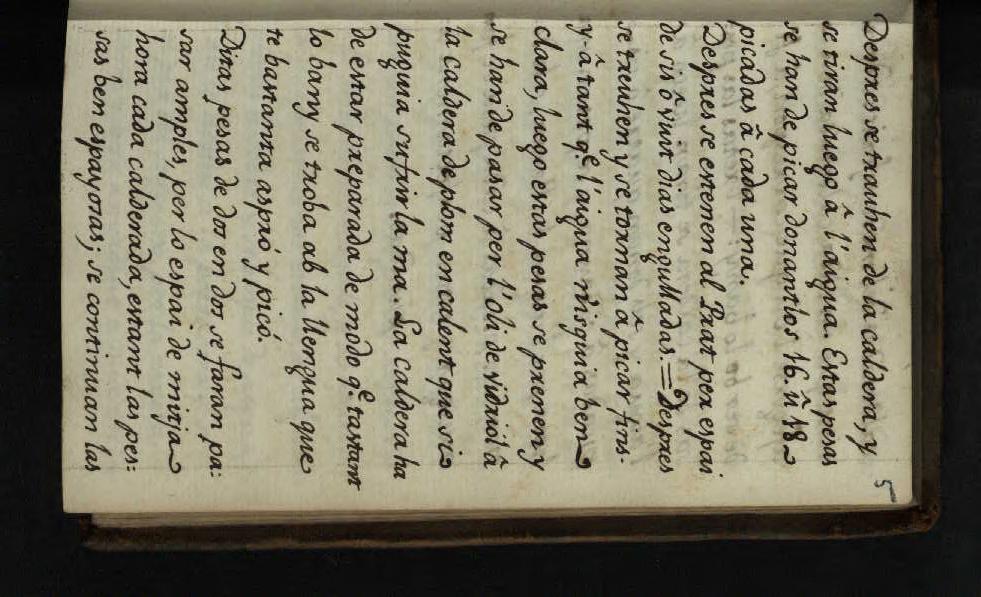 5
Despres se trauhen de la caldera, y
se tiran luego â l'aigua. Estas pesas
se han de picar donantlos 16. û 18
picadas â cada una.
Despres se estenen al Prat per espai
de sis ô vuit dias enguilladas. = Despres
se treuhen y se tornan â picar fins-
y-â tant qe. l'aigua n'isquia ben
clara, luego estas pesas se prenen y
se han de pasar per l'oli de vidriol â
la caldera de plom en calent que si
puguia sufrir la ma. La caldera ha
de estar preparada de modo qe. tastant
lo bany se troba ab la llengua que
te bastanta aspró y picó.
Ditas pesas de dos en dos se faran pa:
sar amples, per lo espai de mitja
hora cada calderada, estant las pes:
sas ben espayosas; se continuan las